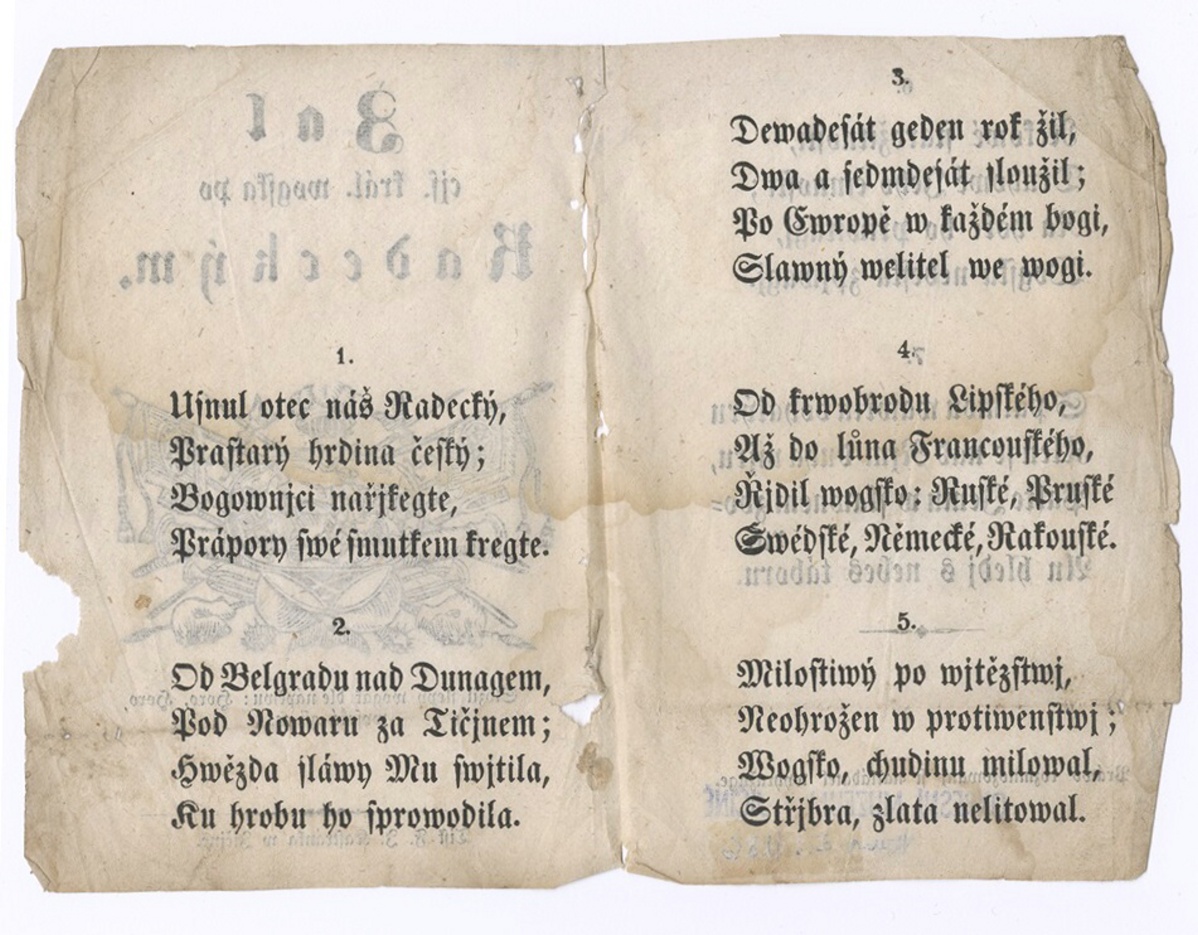 1.
Usnul otec náš Radecký,
Praſtarý hrdina čeſký;
Bogownjci nařjkegte,
Prápory ſwé ſmutkem kregte.
2.
Od Belgradu nad Dunagem,
Pod Nowaru za Tičjnem;
Hwězda ſláwy Mu ſwjtila,
Ku hrobu ho ſprowodila.
3.
Dewadeſát geden rok žil,
Dwa a ſedmdeſát ſloužil;
Po Ewropě w každém bogi,
Slawný welitel we wogi.
4.
Od krwobrodu Lipſkého,
Až do lůna Francouſkého,
Řjdil wogſko: Ruſké, Pruſké
Swédſké, Německé, Rakouſké.
5.
Miloſtiwý po wjtězſtwj,
Neohrožen w protiwenſtwj;
Wogſko, chudinu milowal,
Střjbra, zlata nelitowal.